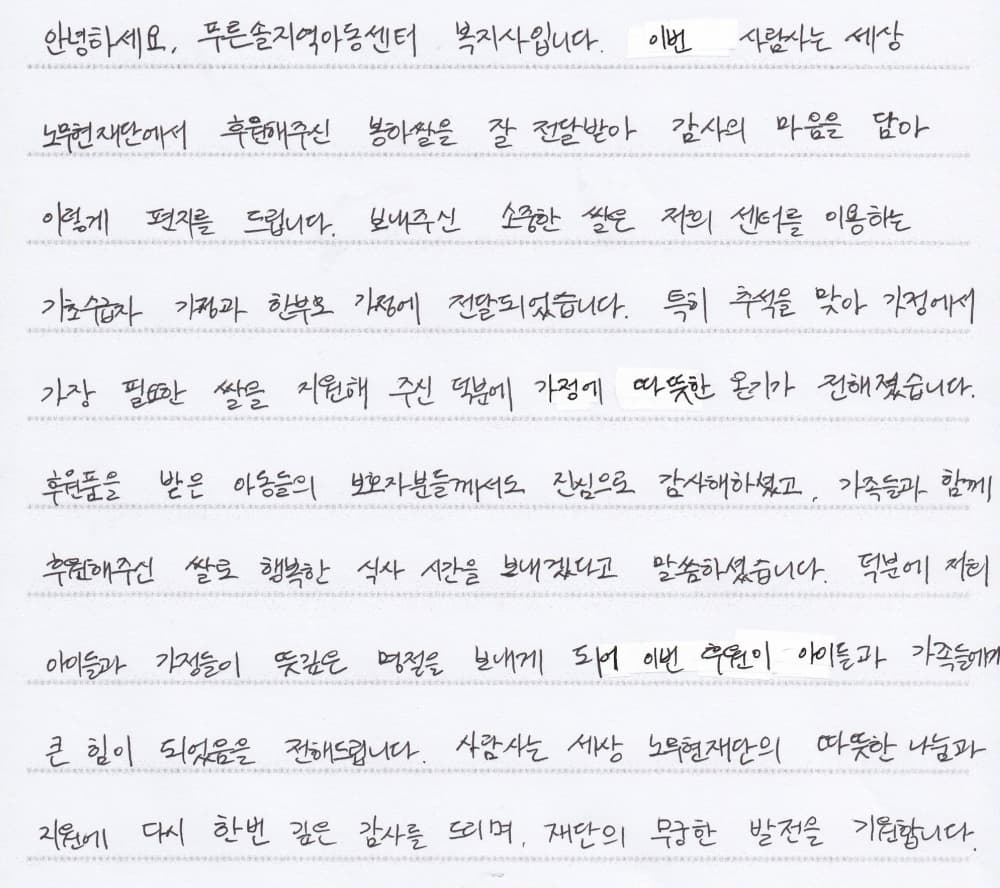 안녕하세요, 푸른솔지역아동센터 복지사입니다. 이번 사람사는 세상
노무현재단에서 후원해주신 봉하쌀을 잘 전달받아 감사의 마음을 담아
이렇게 편지를 드립니다. 보내주신 소중한 쌀은 저희 센터를 이용하는
기초수급자 가정과 한부모 가정에 전달되었습니다. 특히 추석을 맞아 가정에서
가장 필요한 쌀을 지원해 주신 덕분에 가정에 따뜻한 온기가 전해졌습니다.
후원품을 받은 아동들의 보호자분들께서도 진심으로 감사해하셨고, 가족들과 함께
후원해주신 쌀로 행복한 식사 시간을 보내겠다고 말씀하셨습니다. 덕분에 저희
아이들과 가정들이 뜻깊은 명절을 보내게 되어 이번 후원이 아이들과 가족들에게
큰 힘이 되었음을 전해드립니다. 사람사는 세상 노무현재단의 따뜻한 나눔과
지원에 다시 한번 깊은 감사를 드리며, 재단의 무궁한 발전을 기원합니다.